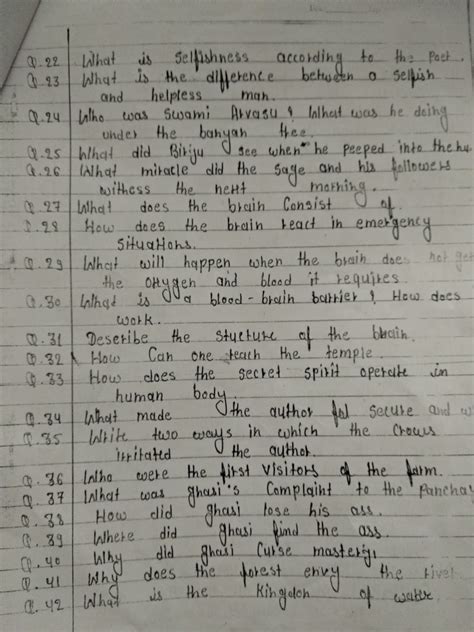 Q.22 What is Selfishness according to the Poet.
Q.23 What is the difference between a selfish
and helpless man.
Q.24 Who was Swami Atvasu & What was he doing
under the banyan tree.
Q.25 What did Birju see when he peeped into the hu
Q.26 What miracle did the Sage and his followers
withess the next morning.
Q.27 What does the brain Consist of.
Q.28 How does the brain react in emergency
Situations.
Q.29 What will happen when the brain does not get
the Oxygen and blood it requires.
Q.30 What is a blood-brain barrier & How does
work.
Q.31 Describe the Structure of the brain.
Q.32 How Can one reach the temple.
Q.33 How does the secret spirit operate in
human body.
Q.34 What made the author secure and
Q.35 Write two ways in which the Crows
irritated the author.
Q.36 Who were the first Visitors of the farm.
Q.37 What was ghasi's Complaint to the Panchay
Q.38 How did ghasi lose his ass.
Q.39 Where did ghasi find the ass.
Q.40 Why did ghasi Curse
Q.41 Why does the forest envy the rivel
Q.42 What is the of water